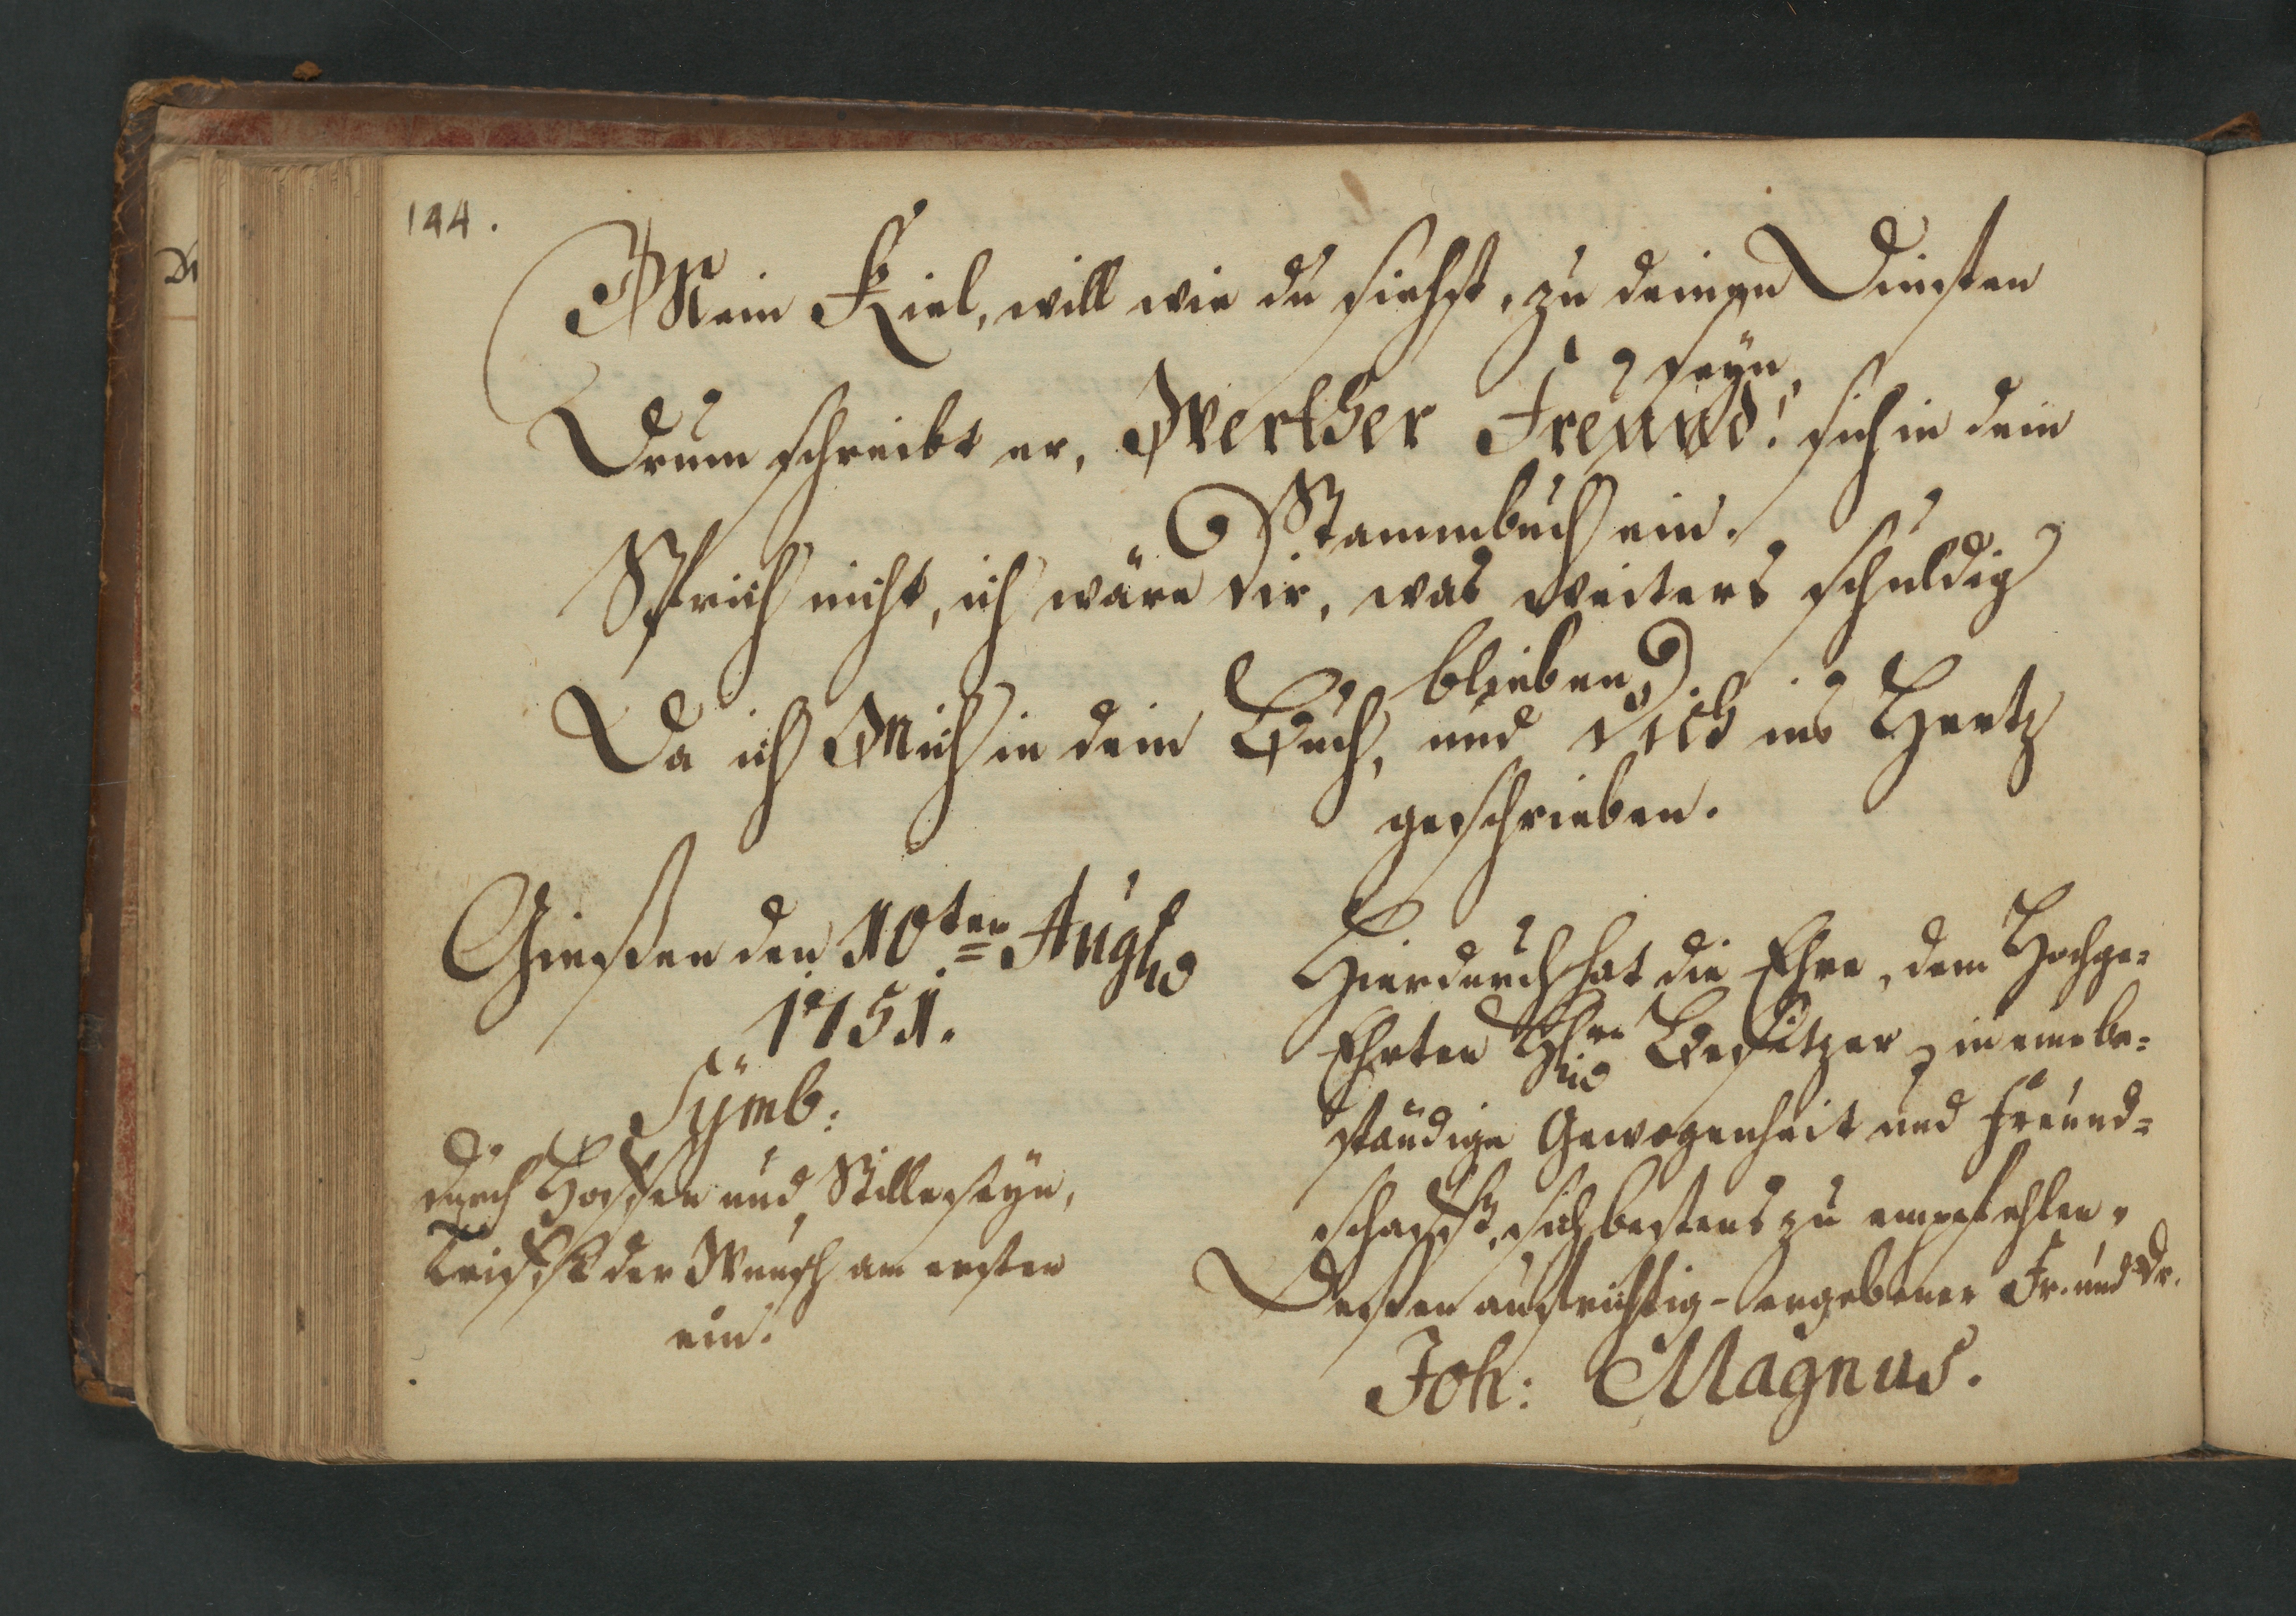 144.
Mein Kiel, will wie du siehst, zu deinen Diensten
seyn,
Drum schreibt er, Werther Freund! sich in dein
Stammbuch ein.
Sprich nicht, ich wäre dir, was weiters schuldig
blieben
Da ich Mich in dein Buch, und dich ins Hertz
geschrieben.
Giessen den 10ten Augst
1751.
Symb:
durch Hoffen und Stilleseyn,
trifft der Wunsch am ersten
ein.
Hierdurch hat die Ehre, dem Hochge=
Ehrten Besitzer in eine be=
ständige Gewogenheit und Freund=
schafft, sich bestens zu empfehlen,
Dessen aufrichtig-ergebener Fr. und Dr.
Joh: Magnus.